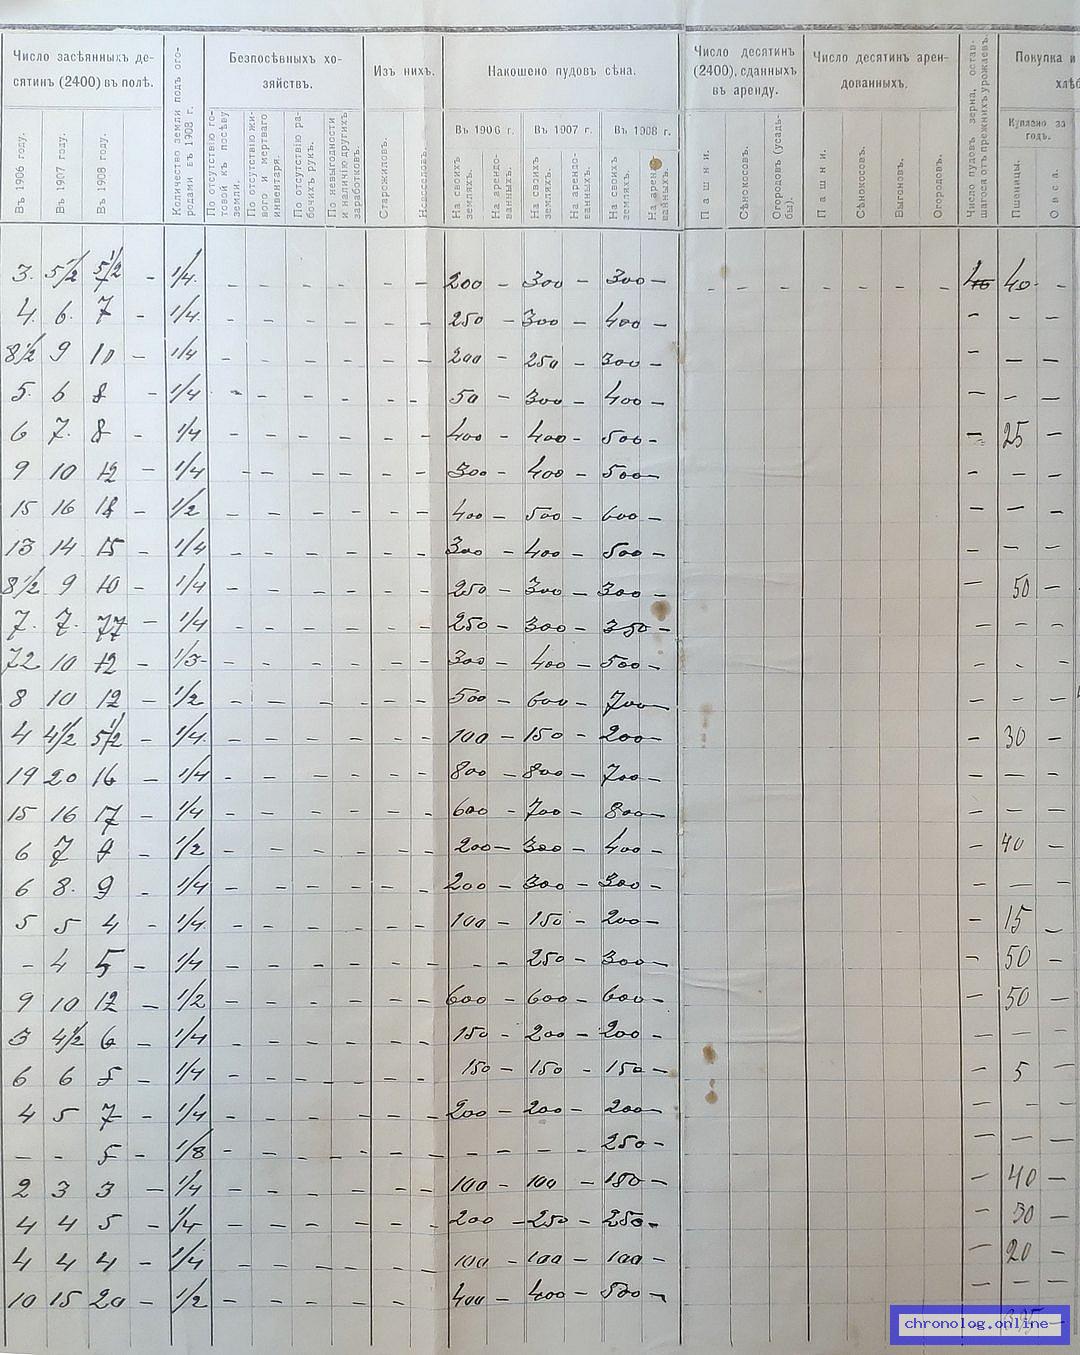 Число засѣянныхъ де-
сятинъ (2400) въ полѣ.
Въ 1906 году.
Въ 1907 году.
Въ 1908 году.
Количество земли подъ ого-
родами въ 1908 г.
Безпосѣвныхъ хо-
зяйствъ.
По отсутствію го-
товой къ посѣву
земли.
По отсутствію жи-
вого и мертваго
инвентаря.
По отсутствію ра-
бочихъ рукъ.
По невыгодности
и наличію другихъ
заработковъ.
Изъ нихъ.
Старожиловъ.
Новоселовъ.
Накошено пудовъ сѣна.
Въ 1906 г. Въ 1907 г. Въ 1908 г.
На своихъ
земляхъ.
На арендо-
ванныхъ.
На своихъ
земляхъ.
На арендо-
ванныхъ.
На своихъ
земляхъ.
На арендо-
ванныхъ.
Число десятинъ
(2400), сданныхъ
въ аренду.
Пашни.
Сѣнокосовъ.
Огородовъ (усадь-
бы).
Число десятинъ арен-
дованныхъ.
Пашни.
Сѣнокосовъ.
Выгоновъ.
Огородовъ.
Число пудовъ зерна, остав-
шагося отъ прежнихъ урожаевъ.
Покупка и
хлѣб
Куплено за
годъ.
Пшеницы.
Овса.
3. 5 1/2 5 1/2 - 1/4. - - - - - - 200 - 300 - 300 - - - - - - - - 40 40 -
4. 6. 7 - 1/4. - - - - - - 250 - 300 - 400 - - - -
8 1/2 9 10 - 1/4 - - - - - - 200 - 250 - 300 - - - -
5. 6 8 - 1/4 - - - - - - 50 - 300 - 400 - - - -
6 7. 8 - 1/4 - - - - - - 400 - 400 - 500 - - 25 -
9 10 12 - 1/4 - - - - - - 300 - 400 - 500 - - - -
15 16 18 - 1/2 - - - - - - 400 - 500 - 600 - - - -
13 14 15 - 1/4 - - - - - - 300 - 400 - 500 - - - -
8 1/2 9 10 - 1/4 - - - - - - 250 - 300 - 300 - - 50 -
7. 7. 77 - 1/4 - - - - - - 250 - 300 - 350 - - - -
72 10 12 - 1/3 - - - - - - 300 - 400 - 500 - - - -
8 10 12 - 1/2 - - - - - - 500 - 600 - 700 - - - -
4 4 1/2 5 1/2 - 1/4. - - - - - - 100 - 150 - 200 - - 30 -
19 20 16 - 1/4 - - - - - - 800 - 800 - 700 - - - -
15 16 17 - 1/4 - - - - - - 600 - 700 - 800 - - - -
6 7 9 - 1/2 - - - - - - 200 - 300 - 400 - - 40 -
6 8. 9 - 1/4 - - - - - - 200 - 300 - 300 - - - -
5 5 4 - 1/4. - - - - - - 100 - 150 - 200 - - 15 -
- 4 5 - 1/4 - - - - - - - - 250 - 300 - - 50 -
9 10 12 - 1/2 - - - - - - 600 - 600 - 600 - - 50 -
3 4 1/2 6 - 1/4 - - - - - - 150 - 200 - 200 - - - -
6 6 5 - 1/4 - - - - - - 150 - 150 - 150 - - 5 -
4 5 7 - 1/4 - - - - - - 200 - 200 - 200 - - - -
- - 5 - 1/8 - - - - - - - - - - 250 - - - -
2 3 3 - 1/4 - - - - - - 100 - 100 - 150 - - 40 -
4 4 5 - 1/4 - - - - - - 200 - 250 - 250 - - 30 -
4 4 4 - 1/4 - - - - - - 100 - 100 - 100 - - 20 -
10 15 20 - 1/2 - - - - - - 400 - 400 - 500 - - - -
chronolog.online